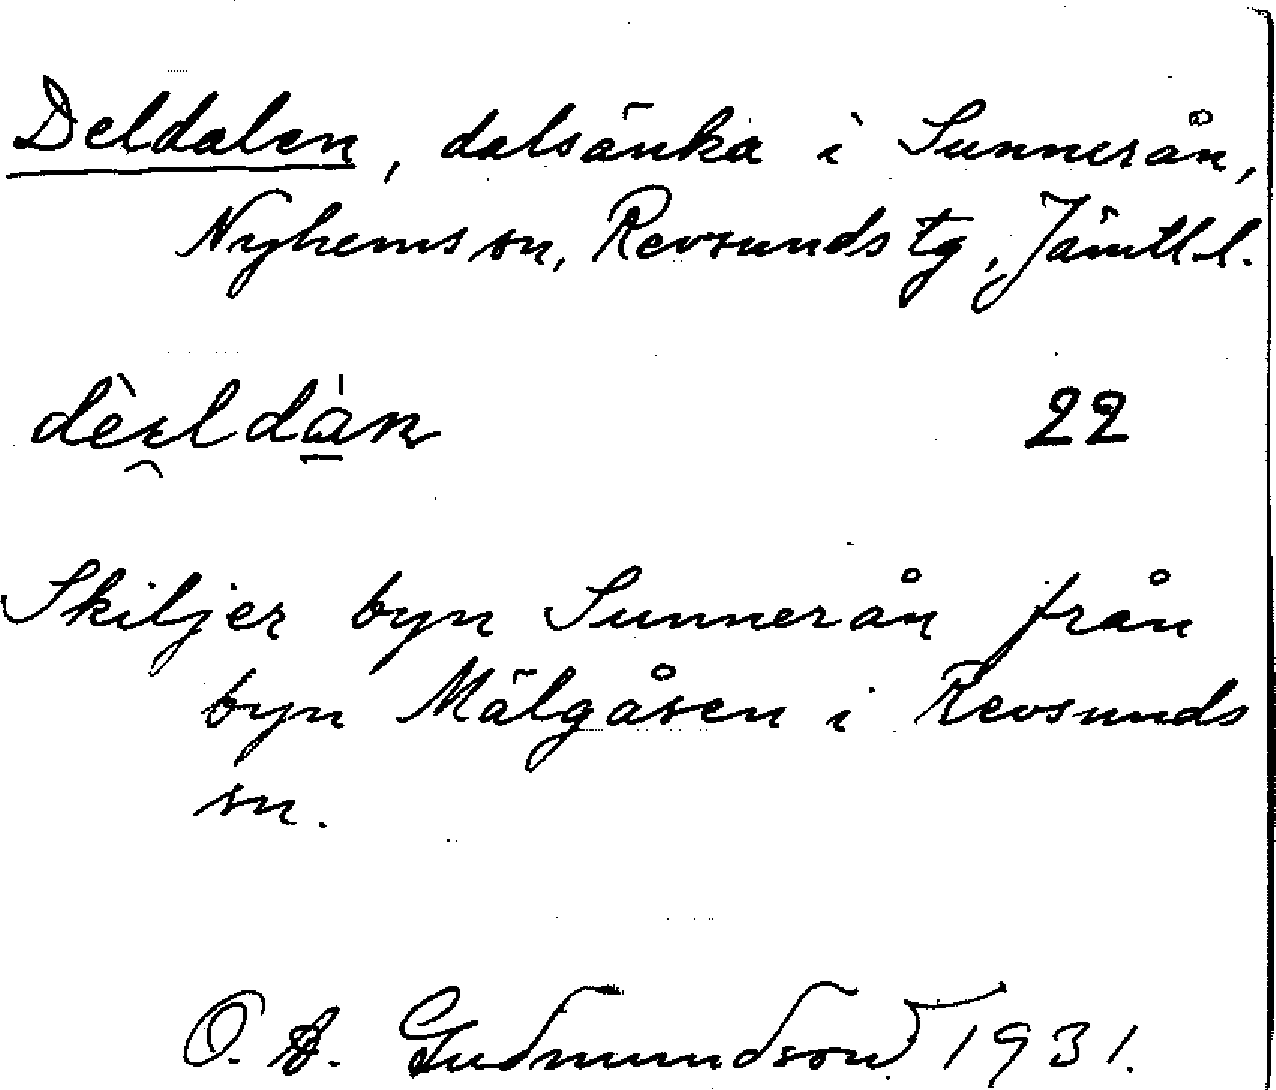 Deldalen, dalsänka i Sunnerån,
Nyhems sn, Revsunds tg, Jämtl. l.
dèɛldàn 22
Skiljer byn Sunnerån från
byn Mälgåsen i Revsunds
sn.
O. A. Gudmundson 1931.